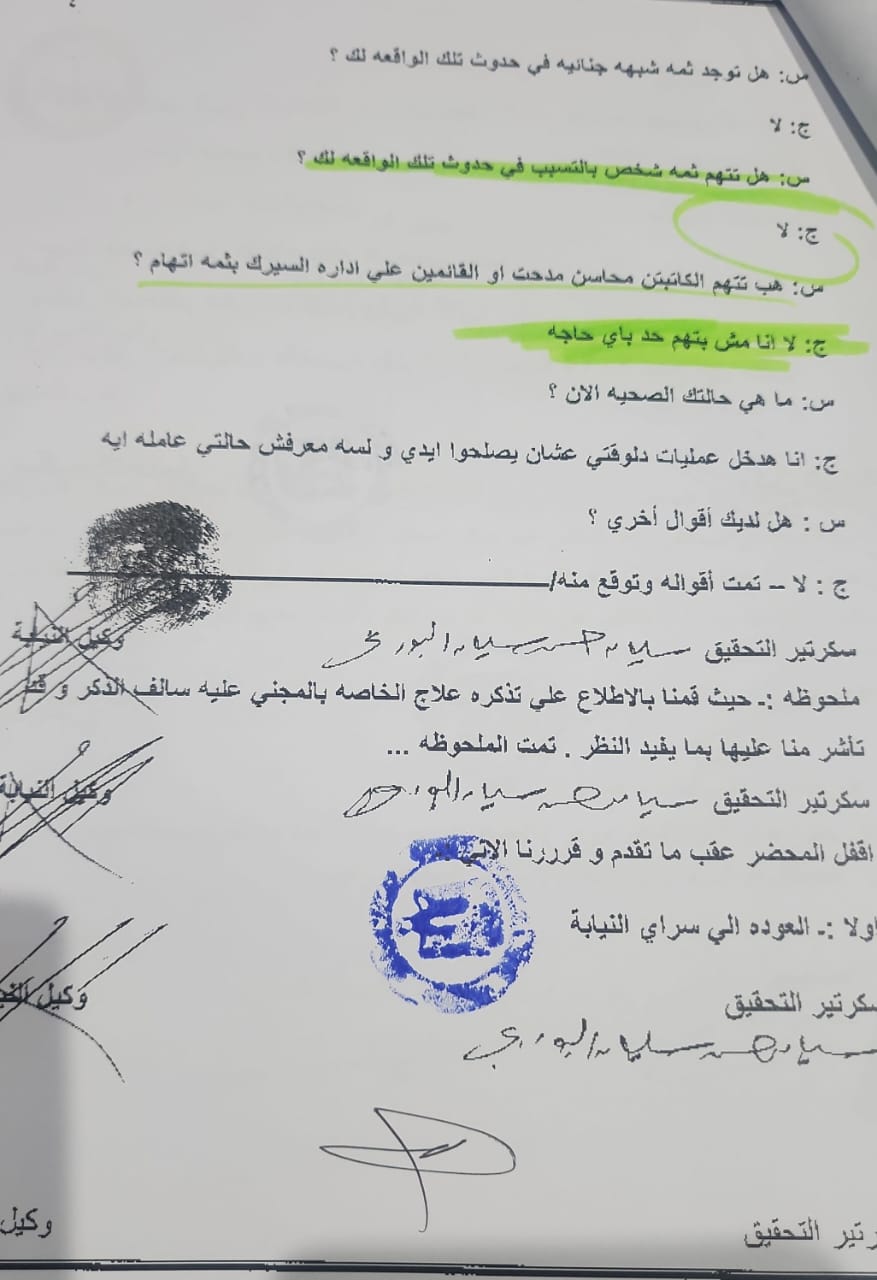 س: هل توجد ثمه شبهه جنائيه في حدوث تلك الواقعه لك ؟
ج: لا
س: هل تتهم ثمه شخص بالتسبب في حدوث تلك الواقعه لك ؟
ج: لا
س: هب تتهم الكاتبتن محاسن مدحت او القائمين علي اداره السيرك بثمه اتهام ؟
ج: لا انا مش بتهم حد باي حاجه
س: ما هي حالتك الصحيه الان ؟
ج: انا هدخل عمليات دلوقتي عشان يصلحوا ايدي و لسه معرفش حالتي عامله ايه
س : هل لديك أقوال أخري ؟
ج : لا – تمت أقواله وتوقع منه/
سكرتير التحقيق وكيل النيابة
ملحوظه :ـ حيث قمنا بالاطلاع علي تذكره علاج الخاصه بالمجني عليه سالف الذكر و قد
تأشر منا عليها بما يفيد النظر . تمت الملحوظه ...
سكرتير التحقيق وكيل النيابة
اقفل المحضر عقب ما تقدم و قررنا الاتي
اولا :ـ العوده الي سراي النيابة
سكرتير التحقيق وكيل
رتير التحقيق وكيل